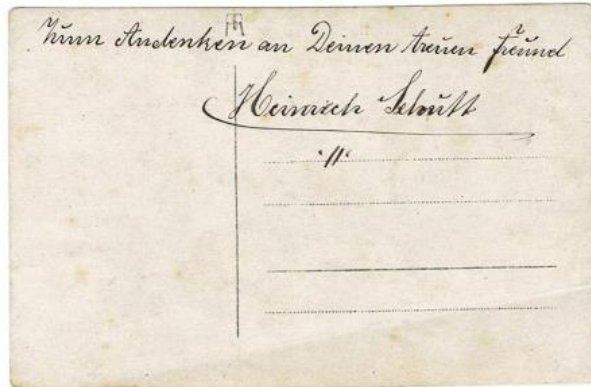 Zum Andenken an Deinen treuen Freund
Heinrich Schütt